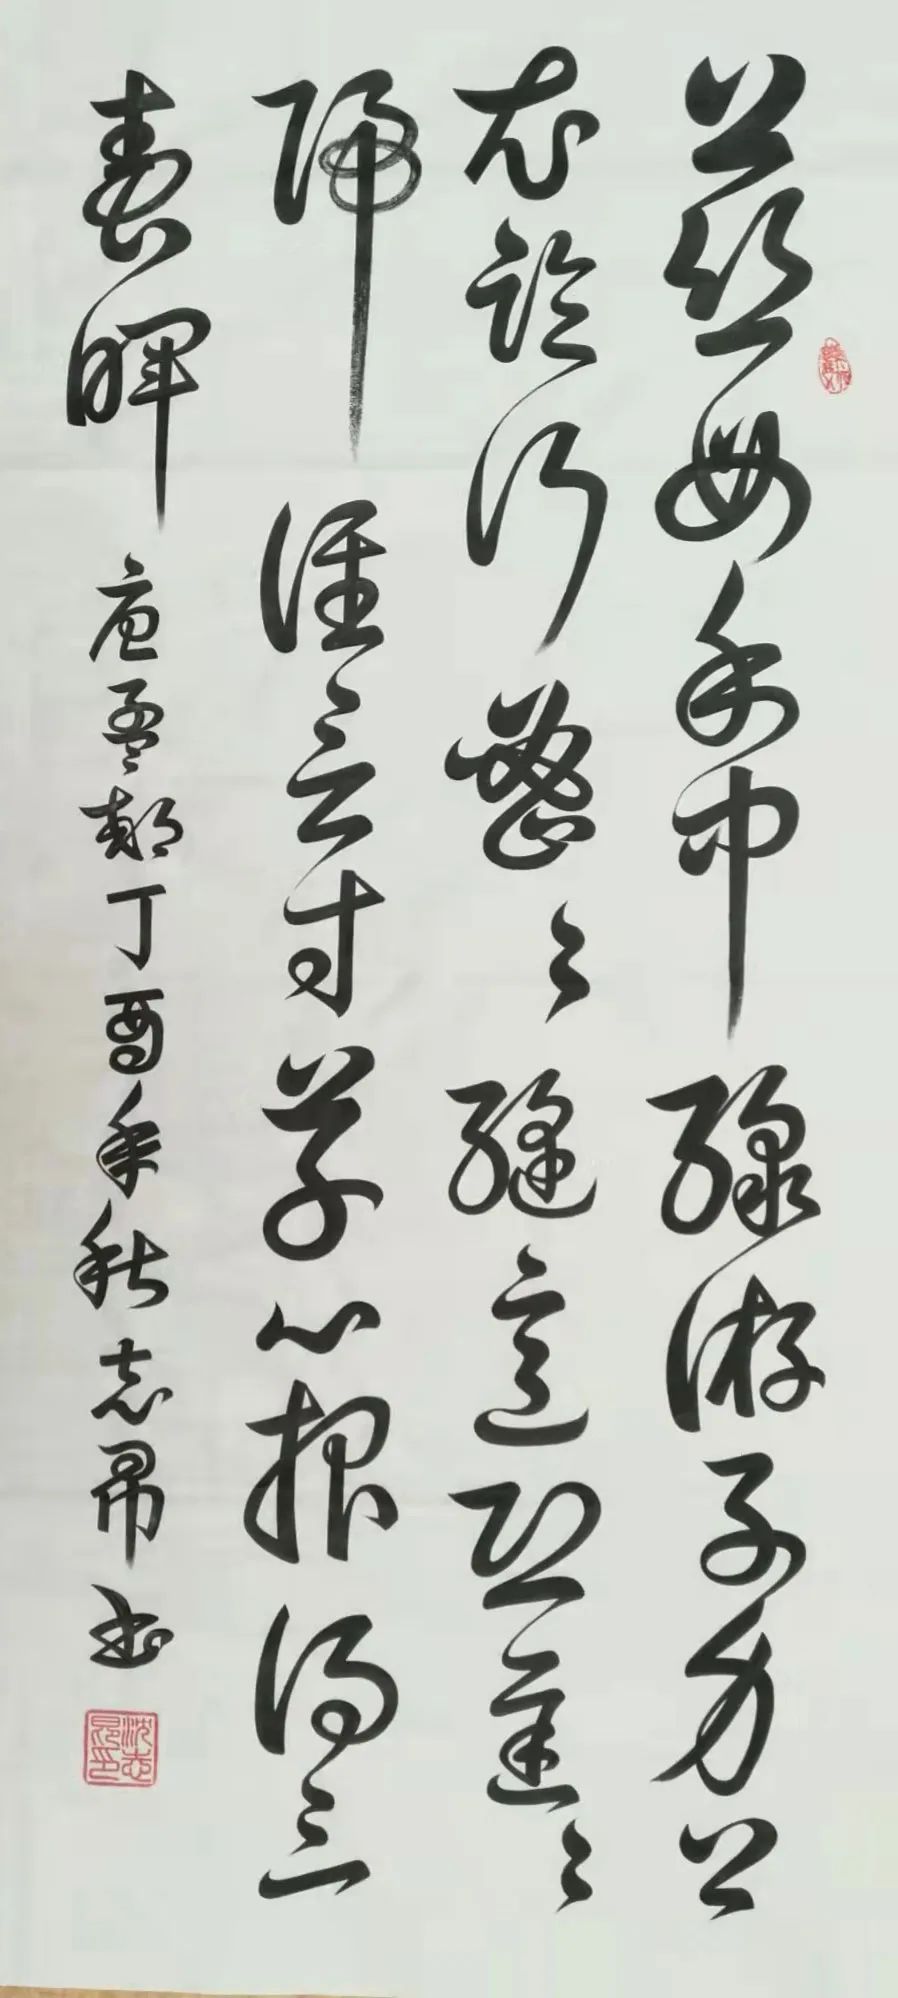 慈母手中線游子身上
衣臨行密々縫意恐遲々
歸誰言寸草心報得三
春暉唐孟郊丁酉年秋志昂書
沈志昂印